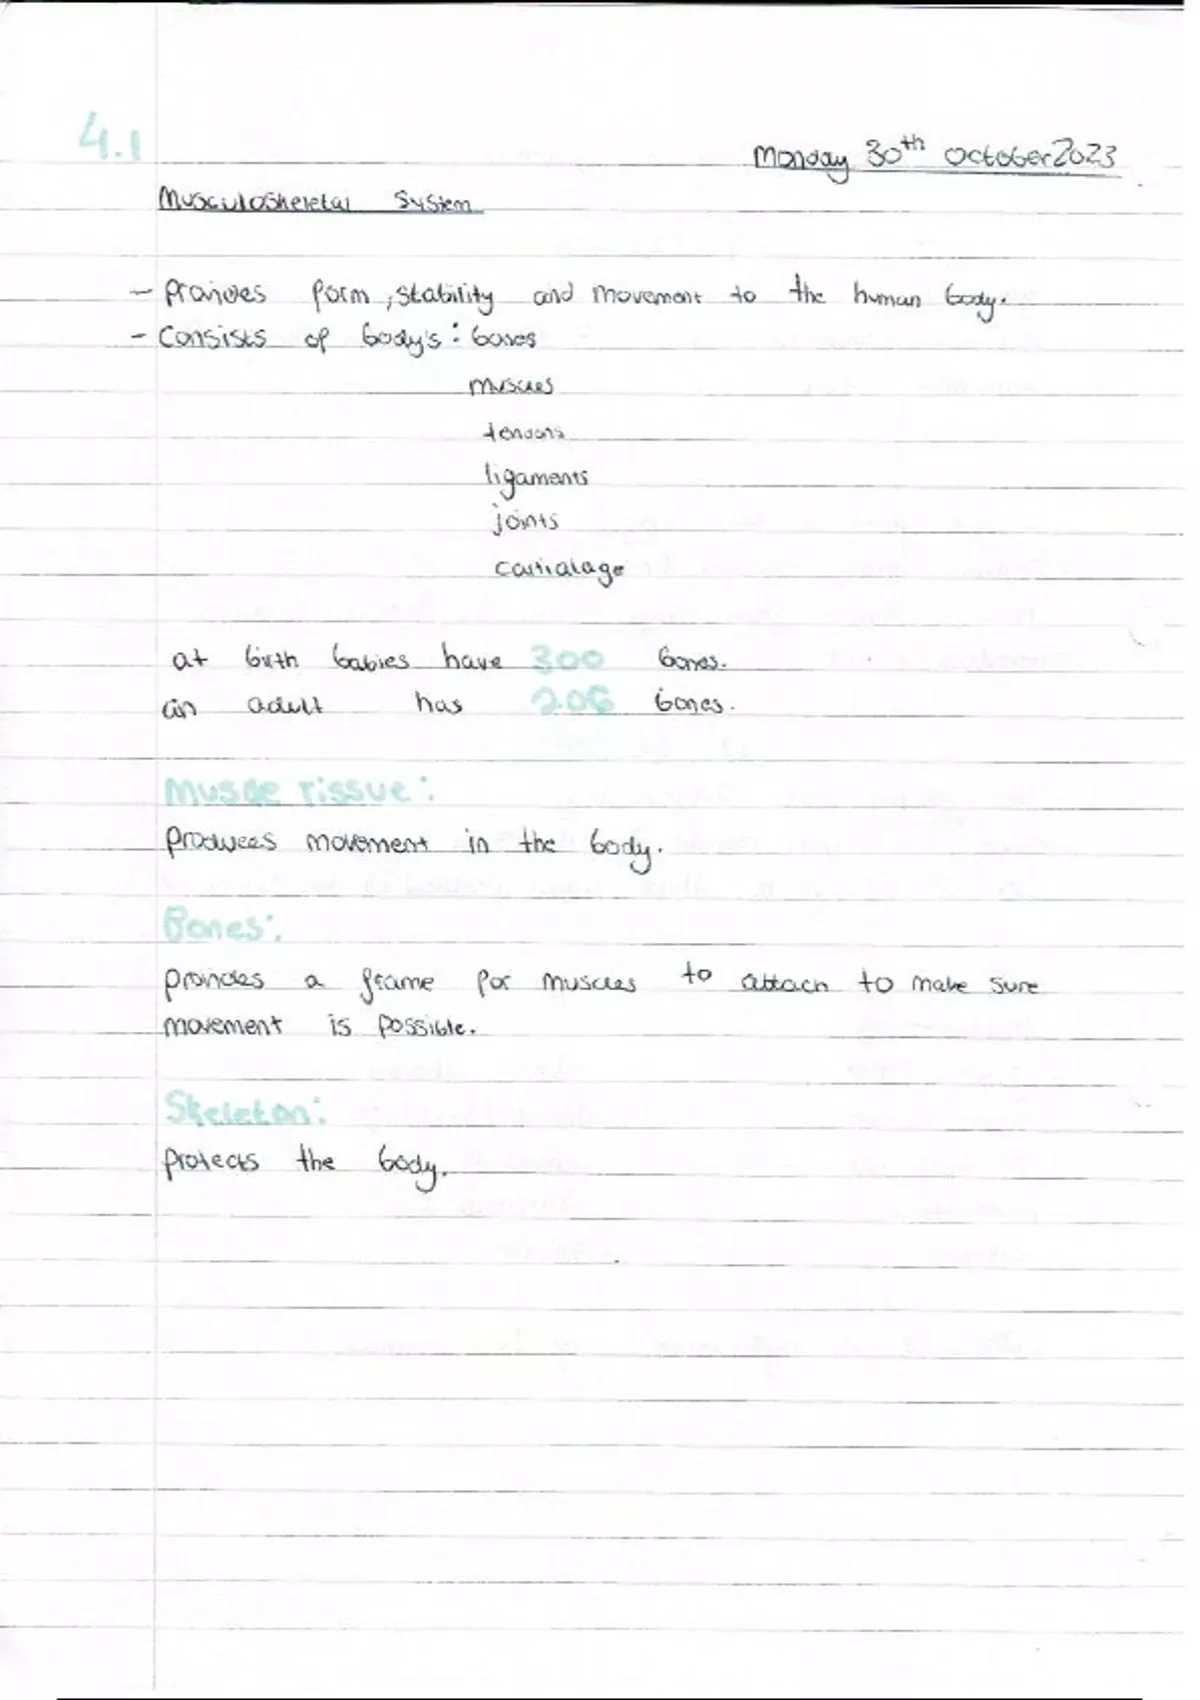 4.1
Monday 30th October 2023
Musculoskeletal System
- provides form, stability and movement to the human body.
- Consists of body's: bones
muscles
tendons
ligaments
joints
cartialage
at birth babies have 300 bones.
an adult has 206 bones.
Muscle Tissue:
produces movement in the body.
Bones:
provides a frame for muscles to attach to make sure
movement is possible.
Skeleton:
protects the body.